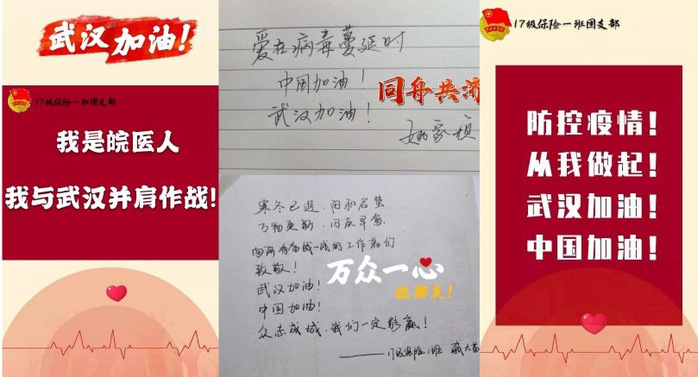 武汉加油!
17级保险一班团支部
我是皖医人
我与武汉并肩作战!
爱在病毒蔓延时
中国加油!
武汉加油!
同舟共济
寒冬已退
万物更新
致敬!
武汉加油!
中国加油!
众志成城,我们一定能赢!
万众一心
——17级保险1班
17级保险一班团支部
防控疫情!
从我做起!
武汉加油!
中国加油!